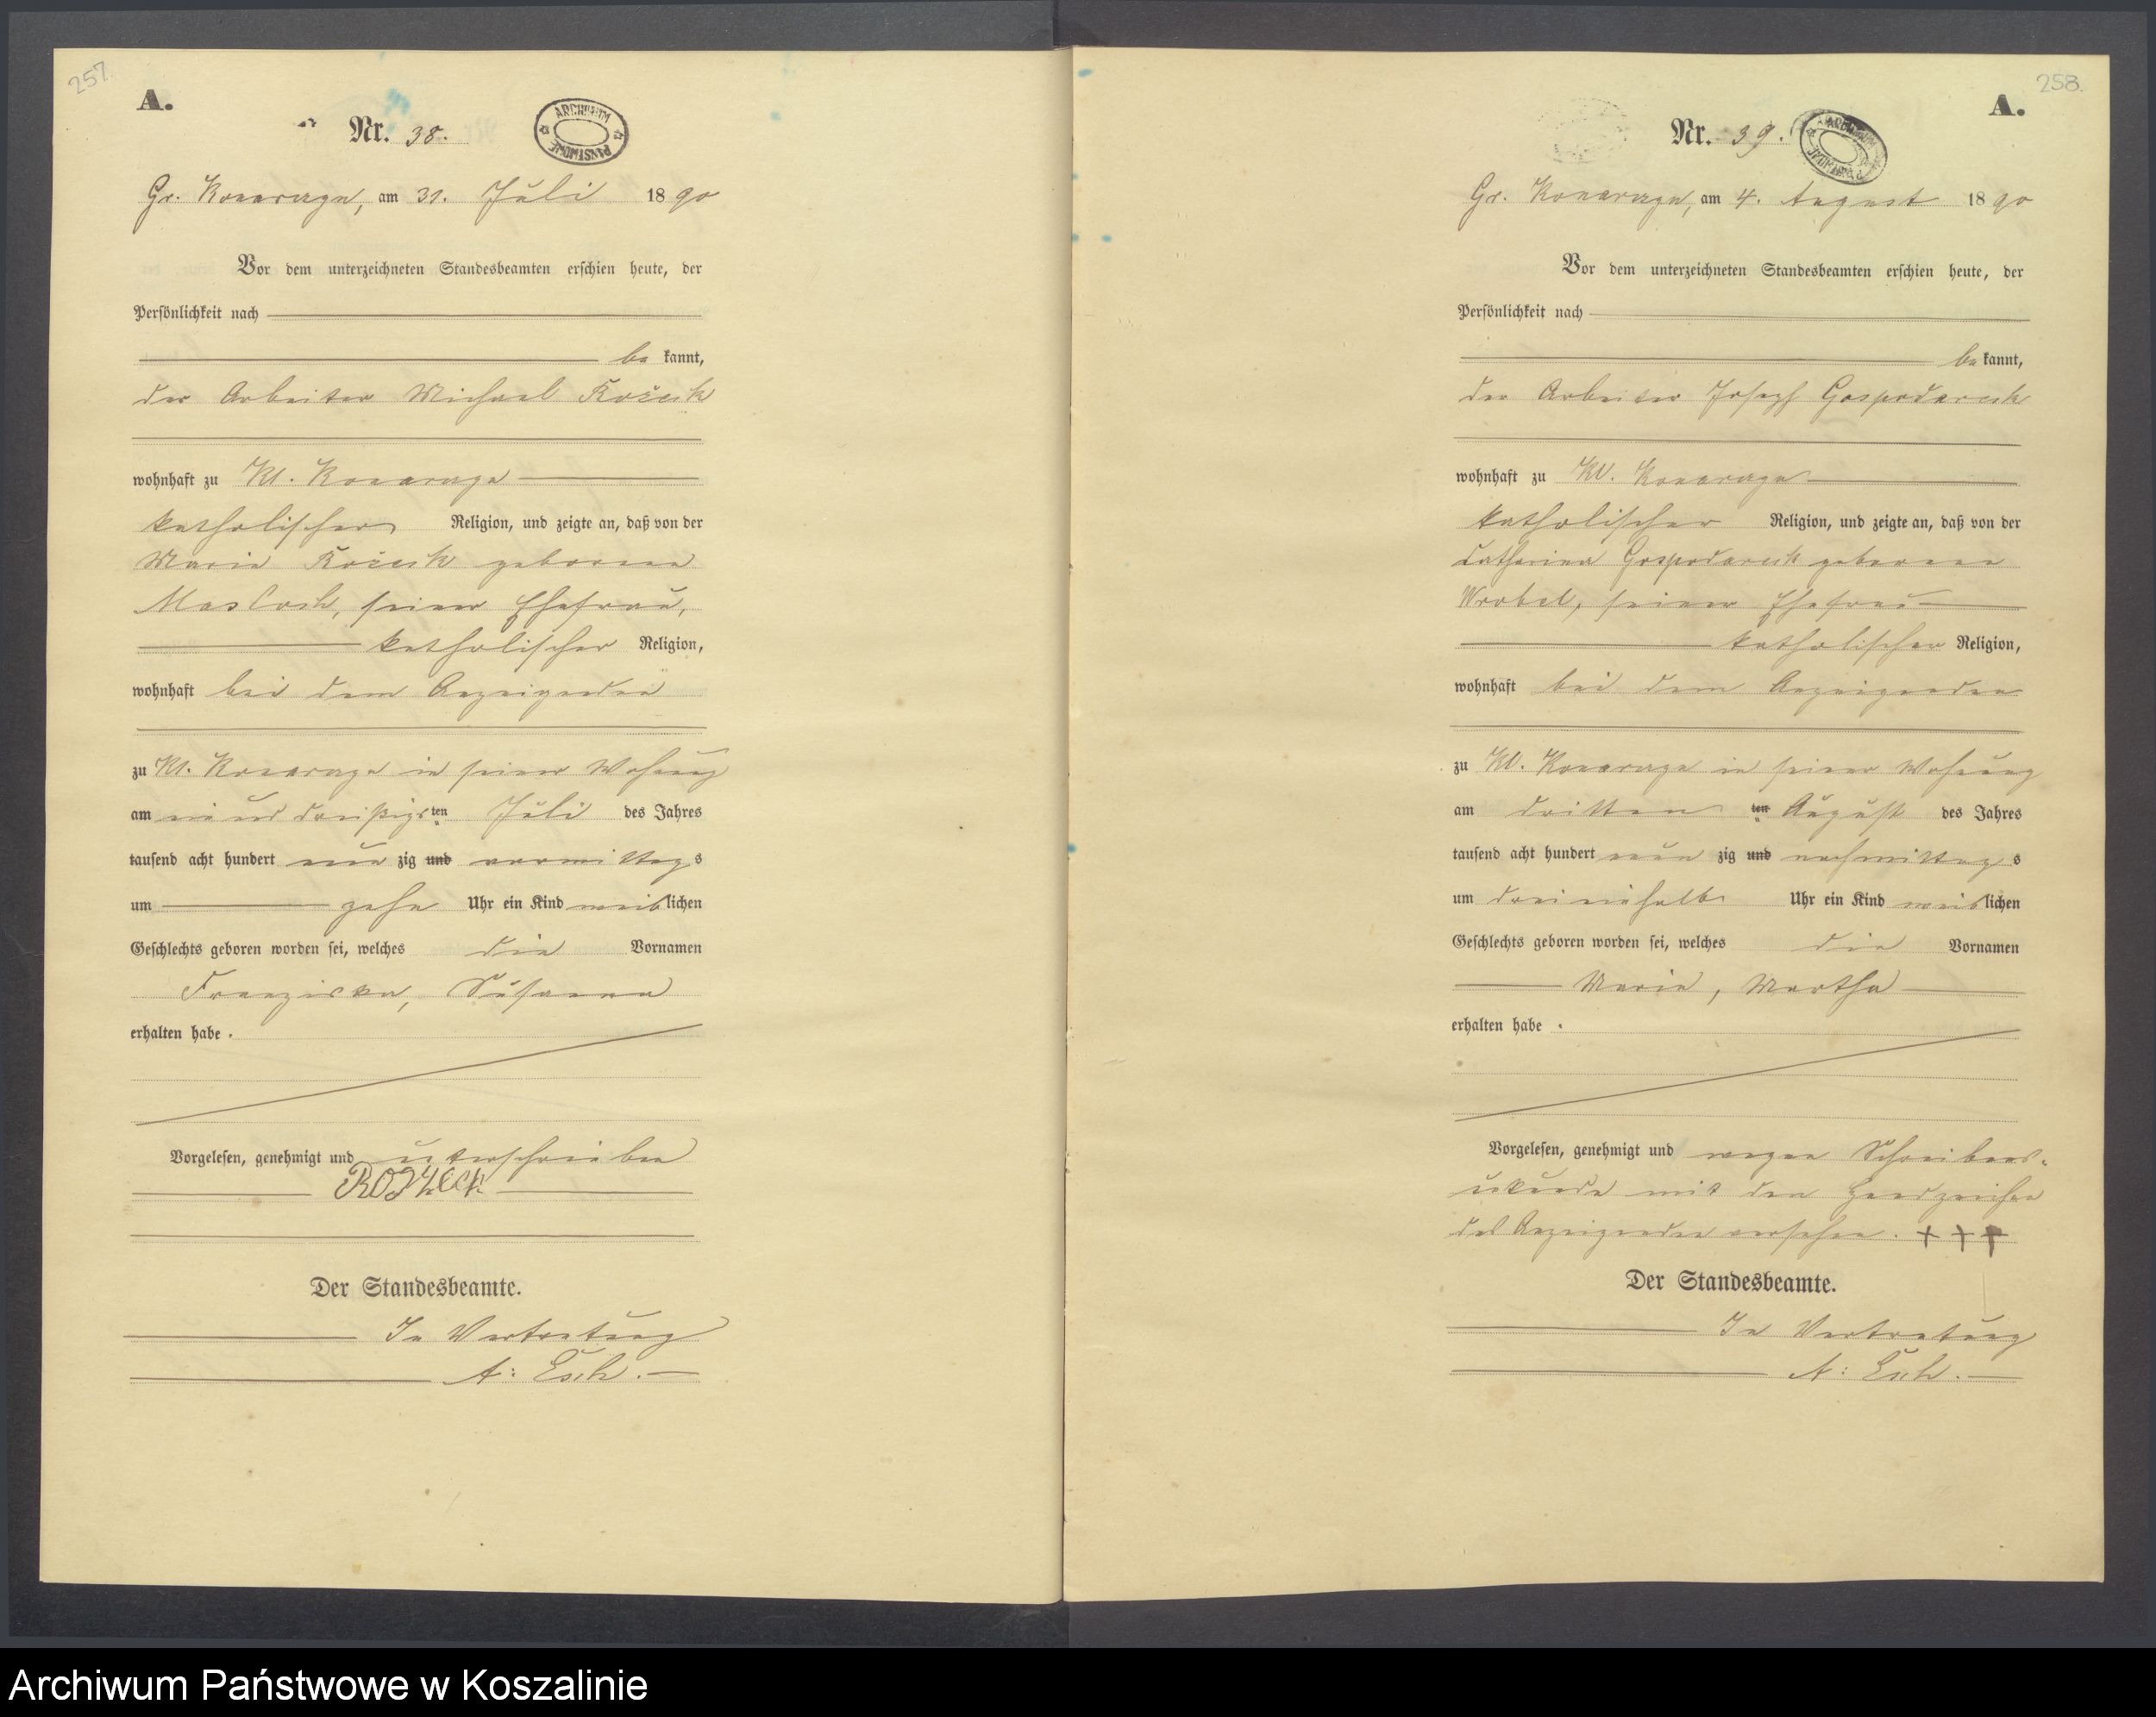 257.
A.
Nr. 38.
ARCHIWUM PAŃSTWOWE
Gr. Konarczyn, am 31. Juli 1890
Vor dem unterzeichneten Standesbeamten erschien heute, der
Persönlichkeit nach
be kannt,
der Arbeiter Michael
wohnhaft zu Kl. Konarczyn
katholischer Religion, und zeigte an, daß von der
Maria geborene
seiner Ehefrau,
katholischer Religion,
wohnhaft bei dem Anzeigenden
zu Kl. Konarczyn in seiner Wohnung
am ein und dreißigsten Juli des Jahres
tausend acht hundert neun zig und vormittags
um zehn Uhr ein Kind weiblichen
Geschlechts geboren worden sei, welches die Vornamen
Franziska, Susanna
erhalten habe.
Vorgelesen, genehmigt und unterschrieben
Der Standesbeamte.
In Vertretung
A:
258.
A.
Nr. 39.
ARCHIWUM
Gr. Konarczyn, am 4. August 1890
Vor dem unterzeichneten Standesbeamten erschien heute, der
Persönlichkeit nach
be kannt,
der Arbeiter Joseph Gospodarek
wohnhaft zu Kl. Konarczyn
katholischer Religion, und zeigte an, daß von der
Catharina Gospodarek geborene
Wrobel, seiner Ehefrau
katholischer Religion,
wohnhaft bei dem Anzeigenden
zu Kl. Konarczyn in seiner Wohnung
am dritten ten August des Jahres
tausend acht hundert neun zig und nachmittags
um drei einhalb Uhr ein Kind weiblichen
Geschlechts geboren worden sei, welches die Vornamen
Maria, Martha
erhalten habe.
Vorgelesen, genehmigt und wegen Schreibens-
unkunde mit den Handzeichen
des Anzeigenden versehen. +++
Der Standesbeamte.
In Vertretung
A:
Archiwum Państwowe w Koszalinie